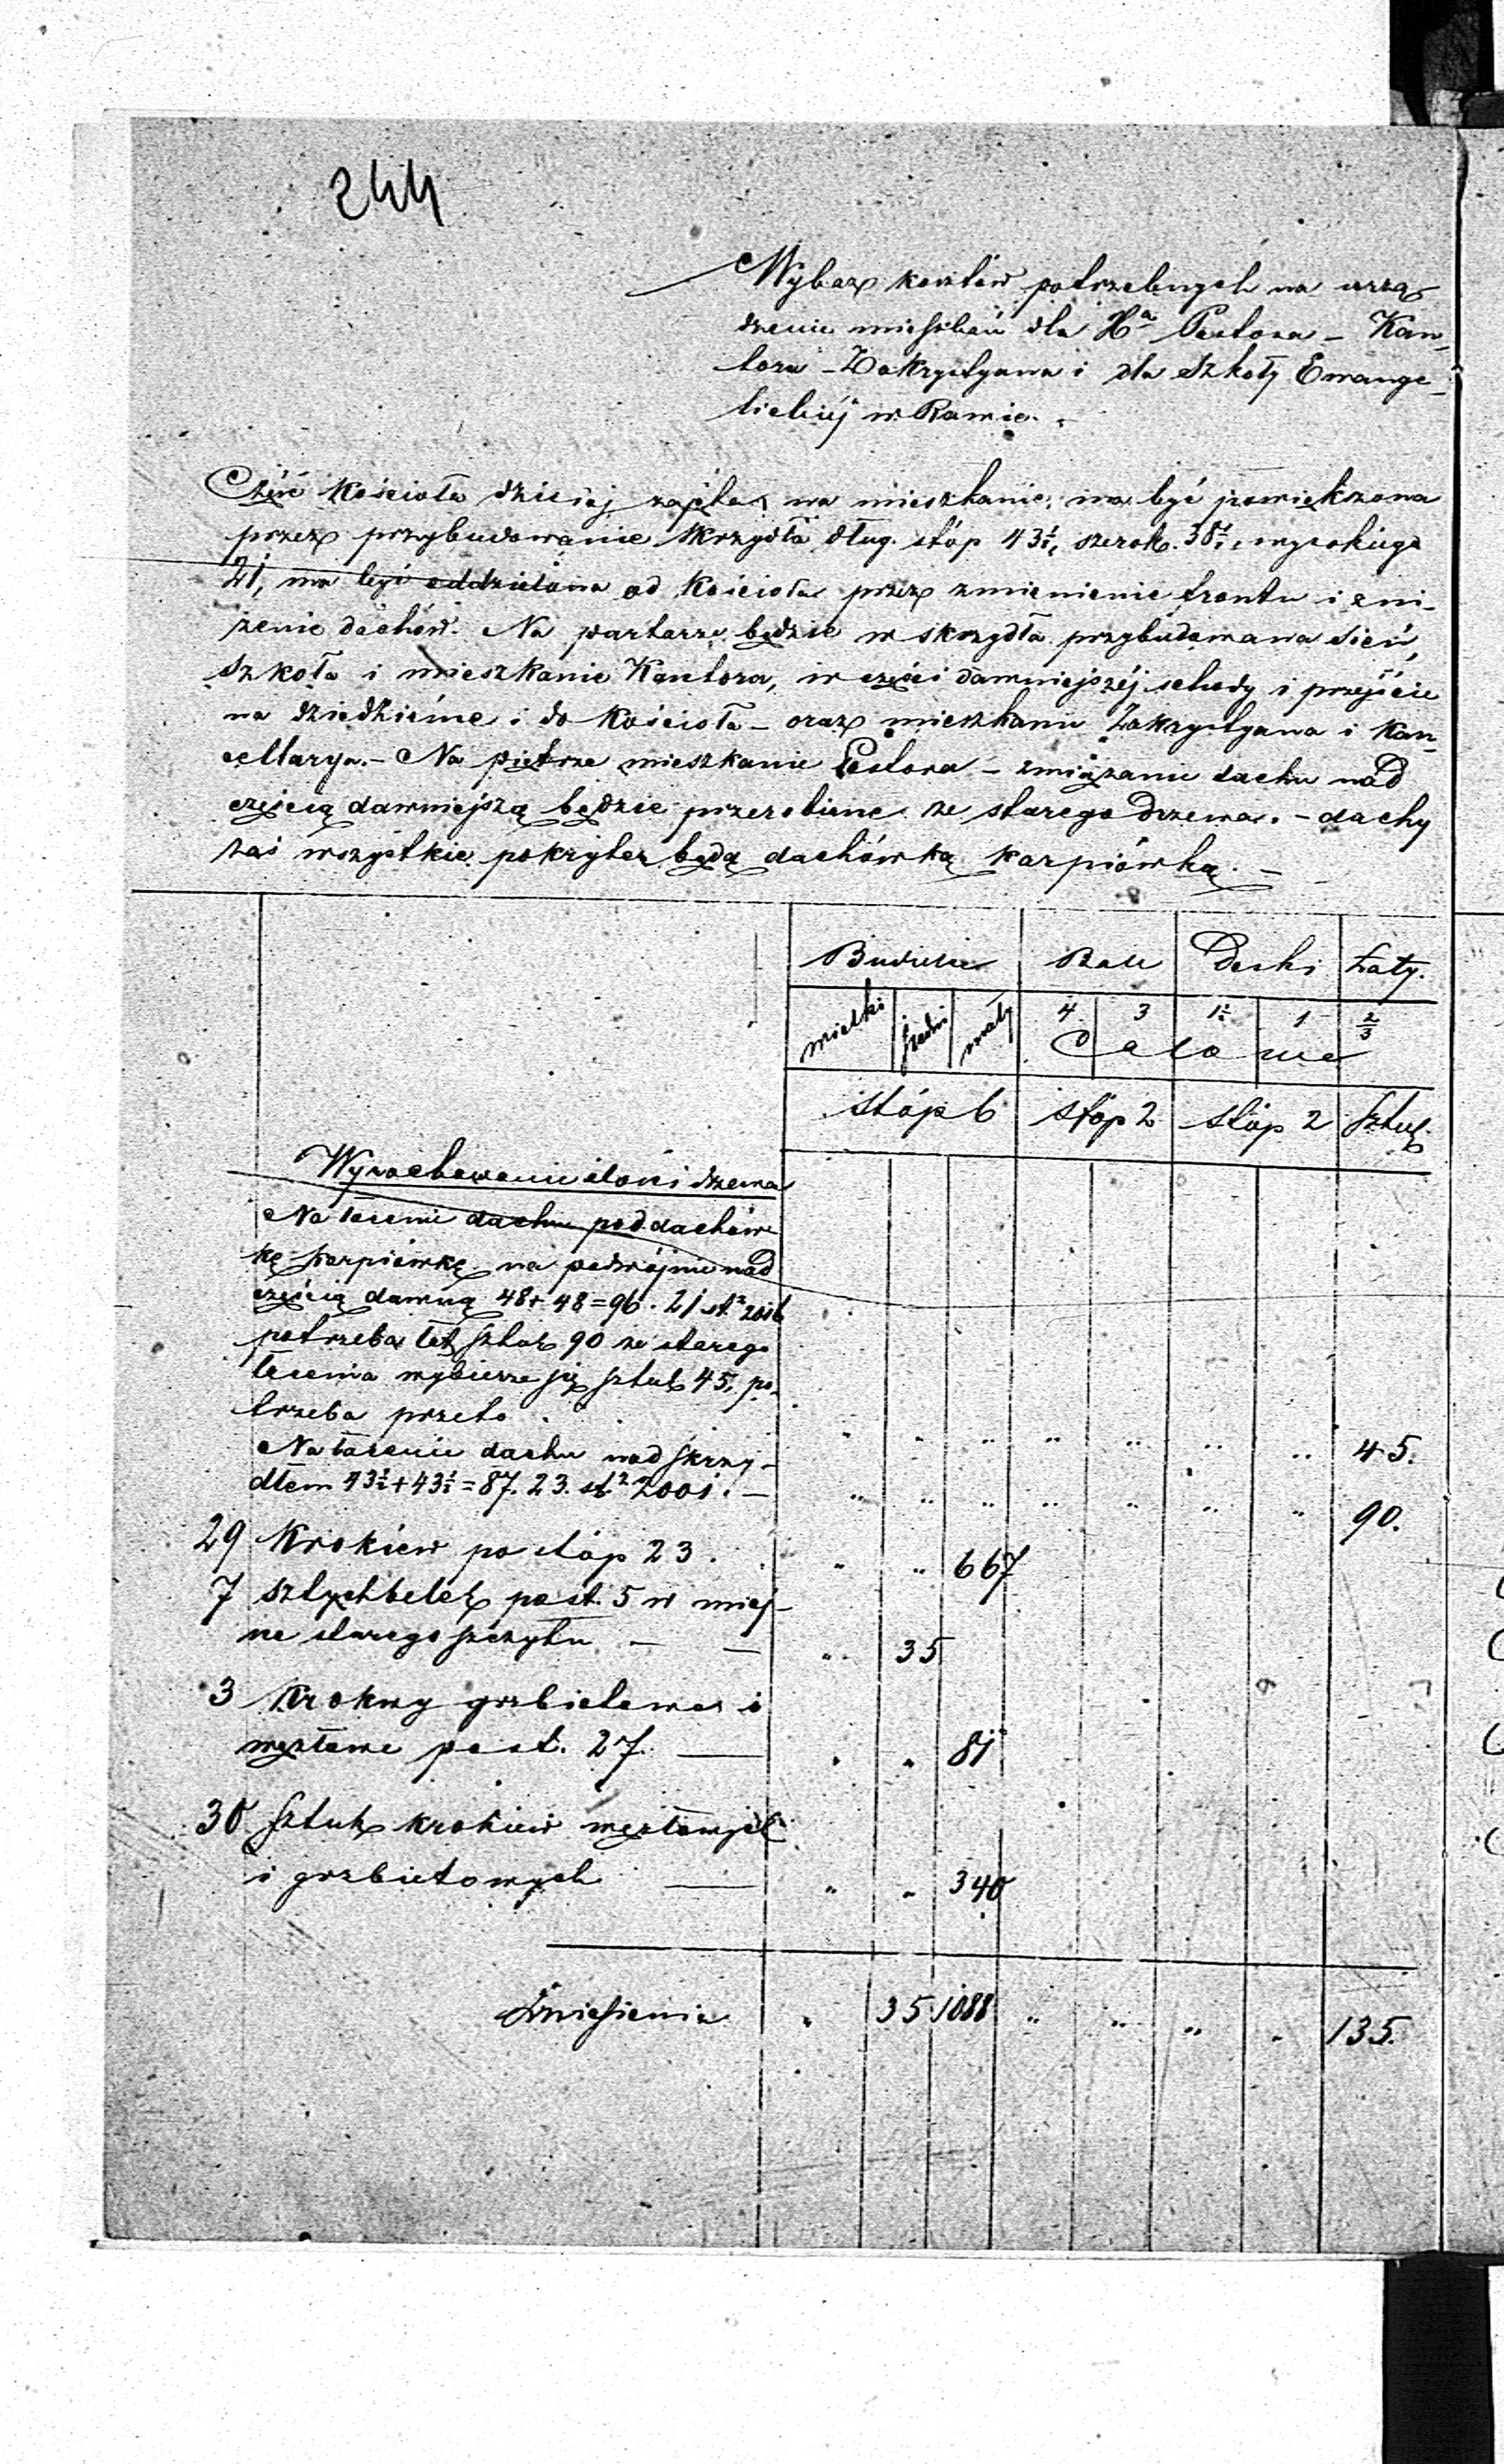 244
Wykaz kosztów potrzebnych na urzą-
dzenie mieszkań dla Xa Pastora – Kan-
tora – Zakrystyana i dla Szkoły Ewange-
lickiéj w Rawie. –
Część Kościoła dzisiaj zajęta na mieszkanie, ma być powiększona
przez przybudowanie skrzydła dług. stóp 43½, szerok. 38½, wysokiego
21, ma być oddzielona od Kościoła przez zmienienie frontu i zni-
żenie dachów. Na parterze będzie w skrzydła przybudowana sień,
szkoła i mieszkanie Kantora, w części dawniejszéj schody i przejście
na dziedzińc i do Kościoła – oraz mieszkanie Zakrystyana i Kan-
cellarya. – Na piętrze mieszkanie Pastora – związanie dachu nad
częścią dawniejszą będzie przerobione ze starego drzewa. – dachy
zaś wszystkie pokryte będą dachówką karpiówką. –
Budulec Bale Deski Łaty.
wielki średni mały 4 3 1½ 1 2/3
Calowe
Stóp 6 stóp 2 stóp 2 Sztuk
Wyrachowanie ilości drzewa
Na łacenie dachu pod dachów-
kę karpiówkę na podwójnie nad
częścią dawną 48+48=96. 21 st.² 2016
potrzeba łat sztuk 90 ze starego
łacenia wybierze się sztuk 45, po-
trzeba przeto . " " " " " " " 45.
Na łacenie dachu nad skrzy-
dłem 43½+43½=87. 23. st.² 2001. – " " " " " " " 90.
29 Krokiew po stóp 23. " " 667
7 sztychbelek po st. 5 w miej-
sce starego szczytu – – " 35
3 Krokwy grzbietowe i
węzłowe po st. 27. — " " 81
30 Sztuk krokiew węzłowych
i grzbietowych — " " 340
Zniesienie " 35 1088 " " " " 135.